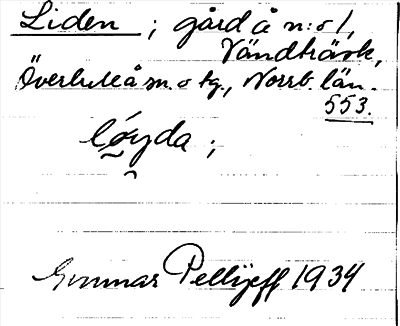 Liden ; gård å n:o 1,
Vändträsk,
Överluleå sn. o tg., Norrb. län.
553.
lóyda ;
Gunnar Pellijeff 1934